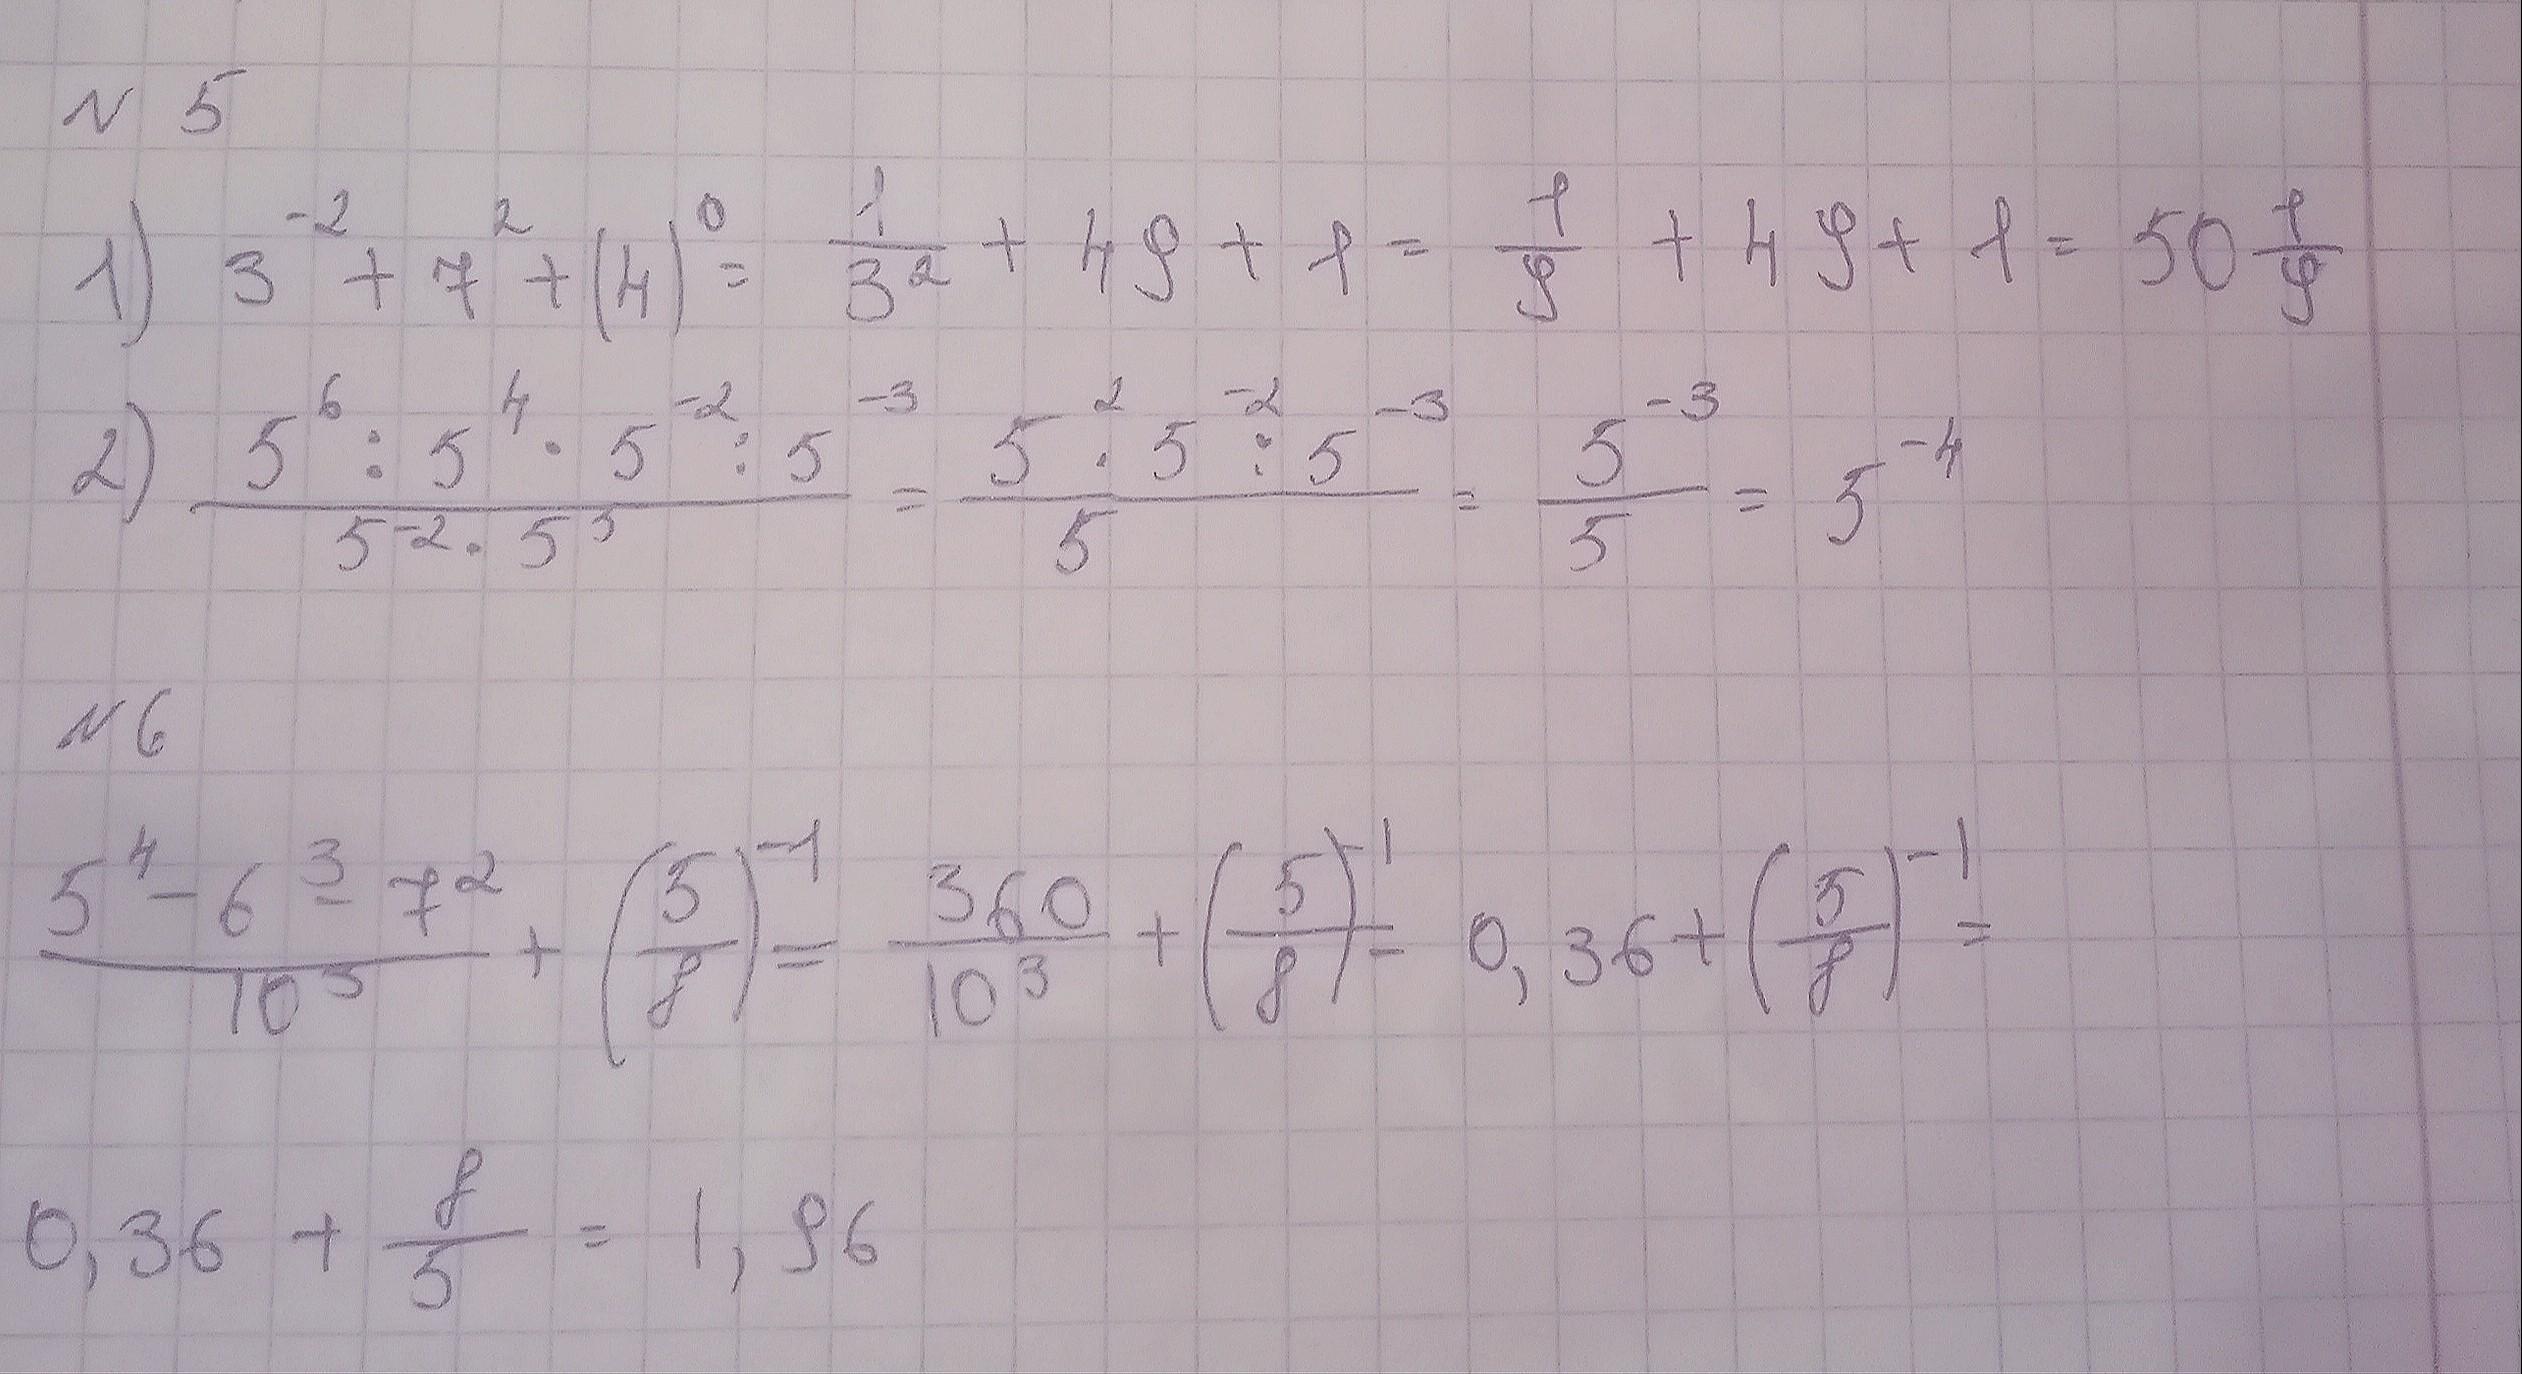 N 5
1) 3^{-2} + 7^2 + (4)^0 = \frac{1}{3^2} + 49 + 1 = \frac{1}{9} + 49 + 1 = 50 \frac{1}{9}
2) \frac{5^6 : 5^4 · 5^{-2} : 5^{-3}}{5^{-2} · 5^3} = \frac{5^2 · 5^{-2} : 5^{-3}}{5} = \frac{5^{-3}}{5} = 5^{-4}
N 6
\frac{5^4 - 6^3 - 7^2}{10^3} + (\frac{5}{8})^{-1} = \frac{360}{10^3} + (\frac{5}{8})^{-1} = 0,36 + (\frac{5}{8})^{-1} =
0,36 + \frac{8}{5} = 1,96